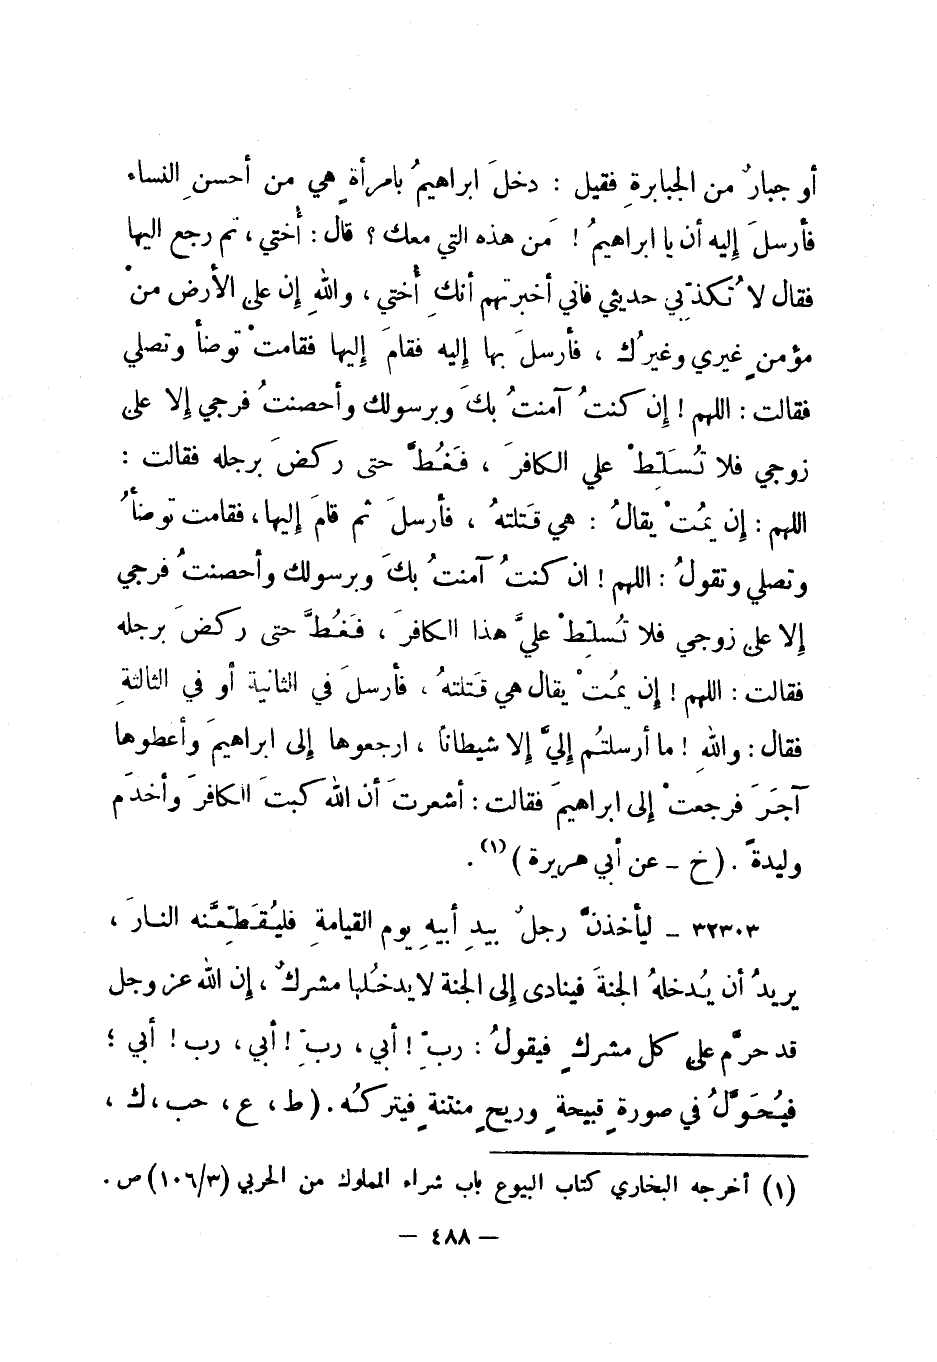 أو جبارٌ من الجبابرةِ فقيل : دخلَ ابراهيمُ بامرأةٍ هي من أحسنِ النساء
فأرسلَ إليه أن يا ابراهيمُ ! مَن هذه التي معك ؟ قال : أُختي ، ثم رجع اليها
فقال لا تُكذِّبي حديثي فاني أخبرتهم أنكِ أُختي ، واللهِ إن على الأرض منْ
مؤمنٍ غيري وغيرُك ، فأرسلَ بها إليه فقامَ إليها فقامتْ توضأ وتصلي
فقالت : اللهم ! إن كنتُ آمنتُ بكَ وبرسولك وأحصنتُ فرجي إلا على
زوجي فلا تُسَلِّطْ علي الكافرَ ، فَغُطَّ حتى ركضَ برجله فقالت :
اللهم : إن يمُتْ يقالُ : هي قَتلتهُ ، فأرسلَ ثم قامَ إليها ، فقامت توضأُ
وتصلي وتقولُ : اللهم ! ان كنتُ آمنتُ بكَ وبرسولك وأحصنتُ فرجي
إلا على زوجي فلا تُسلِّطْ عليَّ هذا الكافرَ ، فَغُطَّ حتى ركضَ برجله
فقالت : اللهم ! إن يمُتْ يقال هي قَتلتهُ ، فأرسلَ في الثانية أو في الثالثةِ
فقال : واللهِ ! ما أرسلتُم إليَّ إلا شيطاناً ، ارجعوها إلى ابراهيمَ وأعطوها
آجَرَ فرجعتْ إلى ابراهيمَ فقالت : أشعرتَ أن الله كبتَ الكافرَ وأخدَم
وليدةً . (خ ـ عن أبي هريرة )(١) .
٣٢٣٠٣ ـ ليأخذنَّ رجلٌ بيدِ أبيهِ يوم القيامةِ فليُقَطِّعَنَّه النارَ ،
يريدُ أن يُدخلهُ الجنةَ فينادى إلى الجنة لا يدخُلها مشركٌ ، إن الله عز وجل
قد حرَّم على كل مشركٍ فيقولُ : ربِّ ! أبي ، ربِّ ! أبي ، رب ! أبي ؛
فيُحَوَّلُ في صورةٍ قبيحةٍ وريحٍ منتنةٍ فيتركُه . ( ط ، ع ، حب ، ك ،
(١) أخرجه البخاري كتاب البيوع باب شراء المملوك من الحربي (١٠٦/٣) ص .
— ٤٨٨ —